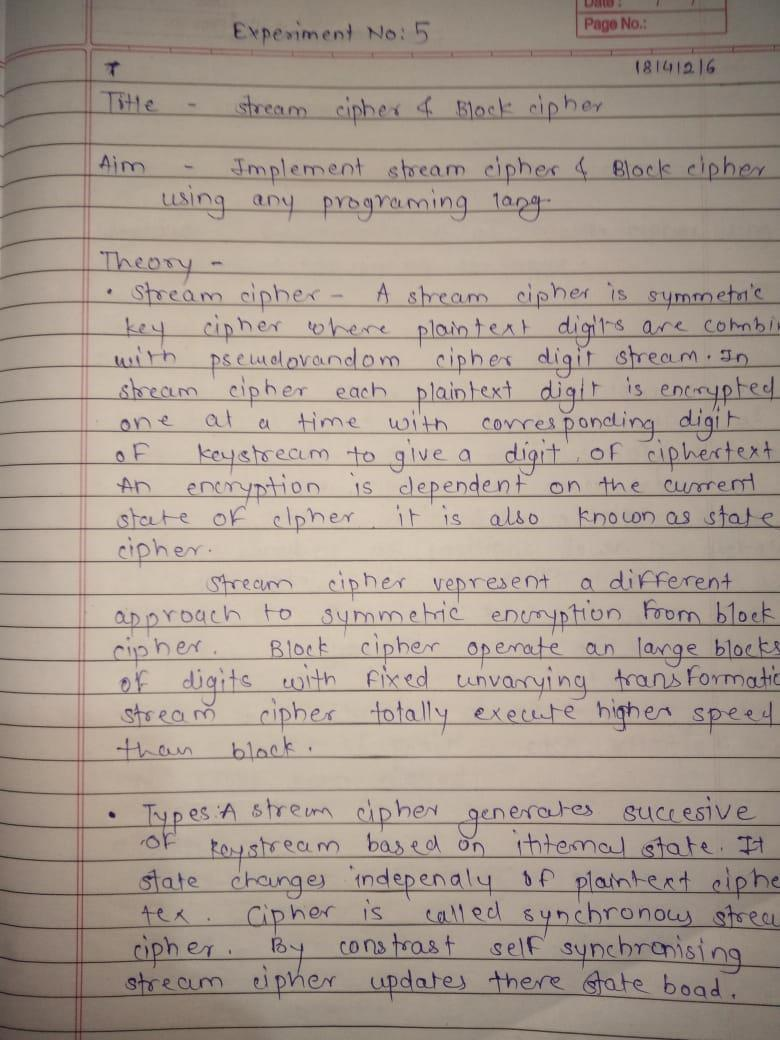 Date :
Experiment No: 5
Page No.:
18141216
Title - stream cipher & Block cipher
Aim - Implement stream cipher & Block cipher
using any programing lang
Theory -
• Stream cipher - A stream cipher is symmetric
key cipher where plaintext digits are combin
with pseudorandom cipher digit stream. In
stream cipher each plaintext digit is encrypted
one at a time with corresponding digit
of keystream to give a digit of ciphertext
An encryption is dependent on the current
state of cipher it is also known as state
cipher.
stream cipher represent a different
approach to symmetric encryption from block
cipher. Block cipher operate an large blocks
of digits with fixed unvarying transformatic
stream cipher totally execute higher speed
than block.
• Types: A strem cipher generates succesive
of keystream based on internal state. It
state changes indepenaly of plaintext ciphe
tex. Cipher is called synchronous strea
cipher. By constrast self synchronising
stream cipher updates there state boad.